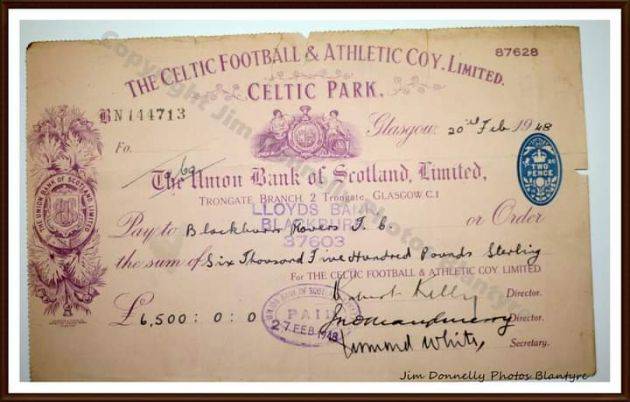 THE CELTIC FOOTBALL & ATHLETIC COY. LIMITED.
87628
CELTIC PARK.
BN144713
Glasgow, 20th Feb 1948
Fo.
The Union Bank of Scotland, Limited,
TRONGATE BRANCH 2 Trongate, GLASGOW. C.1
TWO PENCE
THE UNION BANK OF SCOTLAND LIMITED
LLOYDS BANK
BLACKBURN
37603
Pay to Blackburn Rovers F. C. or Order
the sum of Six Thousand Five Hundred Pounds Sterling
For THE CELTIC FOOTBALL & ATHLETIC COY. LIMITED
£6,500 : 0 : 0
Robert Kelly Director.
Director.
Desmond White, Secretary.
UNION BANK OF SCOTLAND
PAID
27 FEB 1948
Copyright Jim Donnelly Photos Blantyre
Jim Donnelly Photos Blantyre